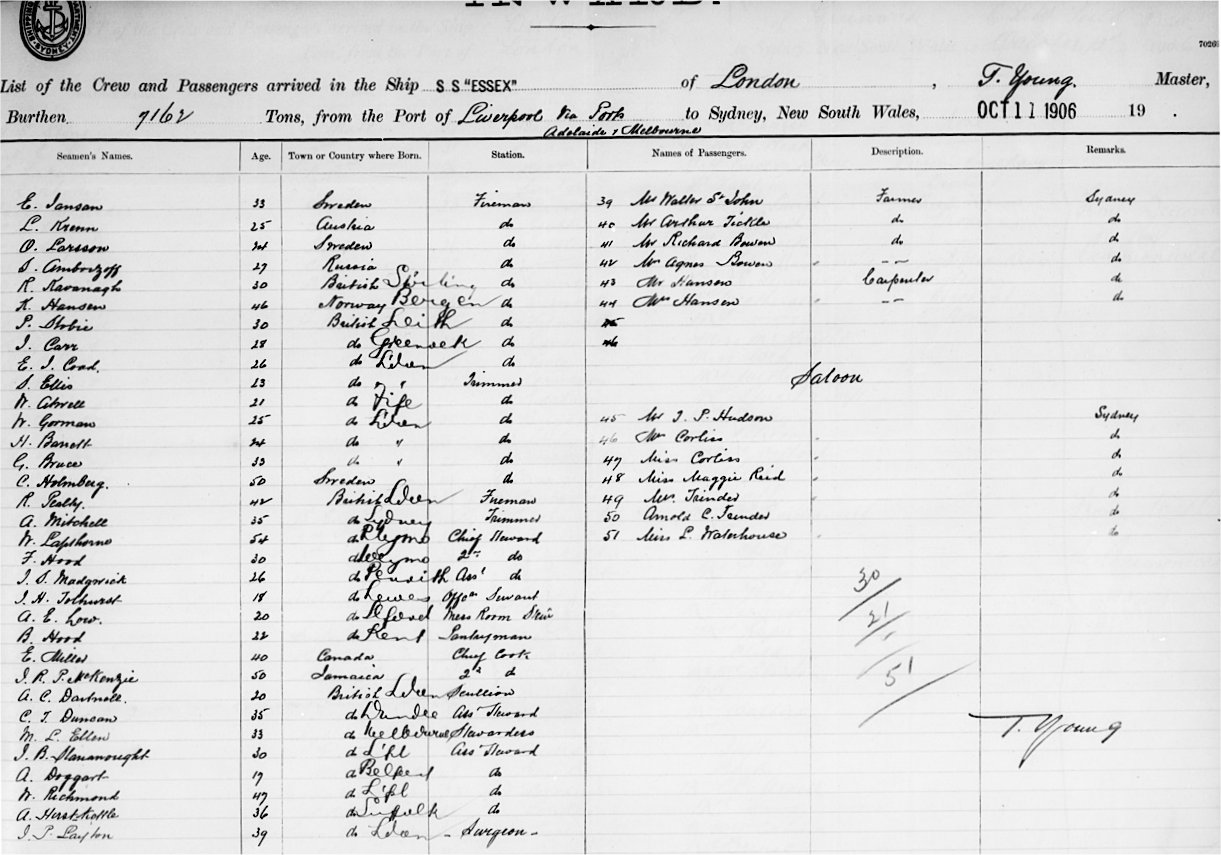 70265
List of the Crew and Passengers arrived in the Ship S.S "ESSEX" of London, T. Young. Master,
Burthen 7162 Tons, from the Port of Liverpool Via Ports to Sydney, New South Wales, OCT 11 1906 19 .
Adelaide & Melbourne
Seamen's Names. Age. Town or Country where Born. Station. Names of Passengers. Description. Remarks.
E. Jansan 33 Sweden Fireman 39 Mr Walter St John Farmer Sydney
L. Krenn 25 Austria do 40 Mr Arthur Tickle do do
O. Larsson 24 Sweden do 41 Mr Richard Bowen do do
S. 27 Russia do 42 Mrs Agnes Bowen -- do
R. Kavanagh 30 British Stirling do 43 Mr Hansen Carpenter do
K. Hansen 46 Norway Bergen do 44 Mrs Hansen -- do
P. Stobie 30 British Leith do 45
J. Carr 28 do Greenock do 46
E. J. Coad. 26 do Ldon do
Saloon
S. Ellis 23 do " " Trimmer
W. Atwell 21 do Fife do
W. Gorman 25 do Ldon do 45 Mr J. P. Hudson Sydney
H. Barrett 24 do " do 46 Mrs Corliss do
G. Bruce 33 do " do 47 Miss Corliss do
C. Holmberg. 50 Sweden do 48 Miss Maggie Reid do
R. 42 British Ldon Fireman 49 Mr. Trinder do
A. Mitchell 35 do Sydney Trimmer 50 Arnold C. Trinder do
W. Lapthorne 54 do Plymo Chief Steward 51 Miss L. Waterhouse do
F. Hood 30 do Plymo 2nd do
J. S. Madgwick 26 do Penrith Asst do
J. H. Tolhurst 18 do Lewes Offrs Servant
A. E. Low. 20 do Mess Room Stew
B. Hood 22 do Kent Pantryman
E. Miller 40 Canada Chief Cook
J. R. P. McKenzie 50 Jamaica 2nd do
A. C. Dartnell. 20 British Ldon Scullion
C. T. Duncan 35 do Dundee Asst Steward
M. L. Ellen 33 do Melbourne Stewardess
J. B. Stananought 30 do L'pl Asst Steward
A. Doggart 19 do Belfast do
W. Richmond 47 do L'pl do
A. 36 do Suffolk do
J. P. Layton 39 do Ldon - Surgeon -
30
21
51
T. Young